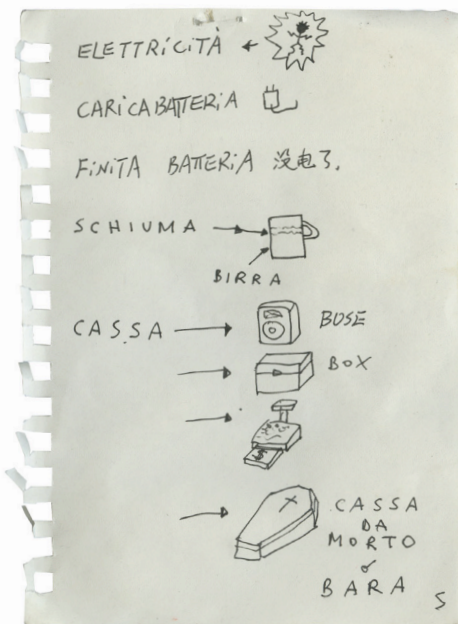 ELETTRICITÀ
CARICABATTERIA
FINITA BATTERIA 没电了.
SCHIUMA
BIRRA
CASSA BOSE
BOX
$
CASSA
DA
MORTO
o
BARA
5